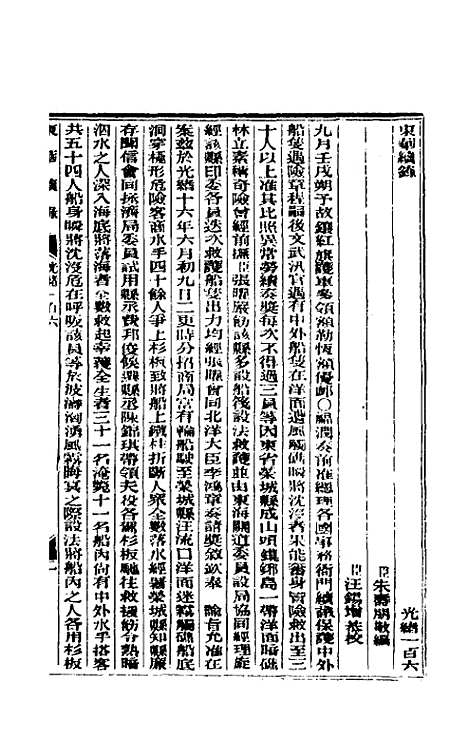 東華續錄
光緖一百六
臣朱壽朋敬編
臣汪錫增恭校
九月壬戌朔予故鑲紅旗護軍參領額勒恆額優䘏○福潤奏前准總理各國事務衙門續議保護中外
船隻遇險章程嗣後文武汛官遇有中外船隻在洋面遭風觸礁瞬將沈沒者果能奮身冒險救出至三
十人以上准其比照異常勞績奏獎每次不得過三員等因東省榮城縣成山頭鎮鎁島一帶洋面暗礁
林立素稱奇險曾經前撫臣張曜嚴飭該縣多設船筏設法救護並由東海關道委員設局協同經理嗣
經該縣印委各員迭次救護船隻出力均經張曜會同北洋大臣李鴻章奏請獎敘欽奉 諭旨允准在
案茲於光緖十六年六月初九日二更時分招商局富有輪船駛至榮城縣汪流口洋面迷霧觸礁船底
洞穿極形危險客商水手四十餘人爭上杉板致將船上鐵柱折斷人眾全數落水經署榮城縣知縣廉
存聞信會同拯濟局委員試用縣丞費邦俊候選縣丞陳錦琪帶領夫役各駕杉板馳往救援飭令熟暗
泅水之人深入海底將落海者全數救起幸獲全生者三十一名淹斃十一名船內尚有中外水手搭客
共五十四人船身瞬將沈沒危在呼吸該員等於波濤洶湧風霧晦冥之際設法將船內之人各用杉板
東華續錄 光緖一百六 一